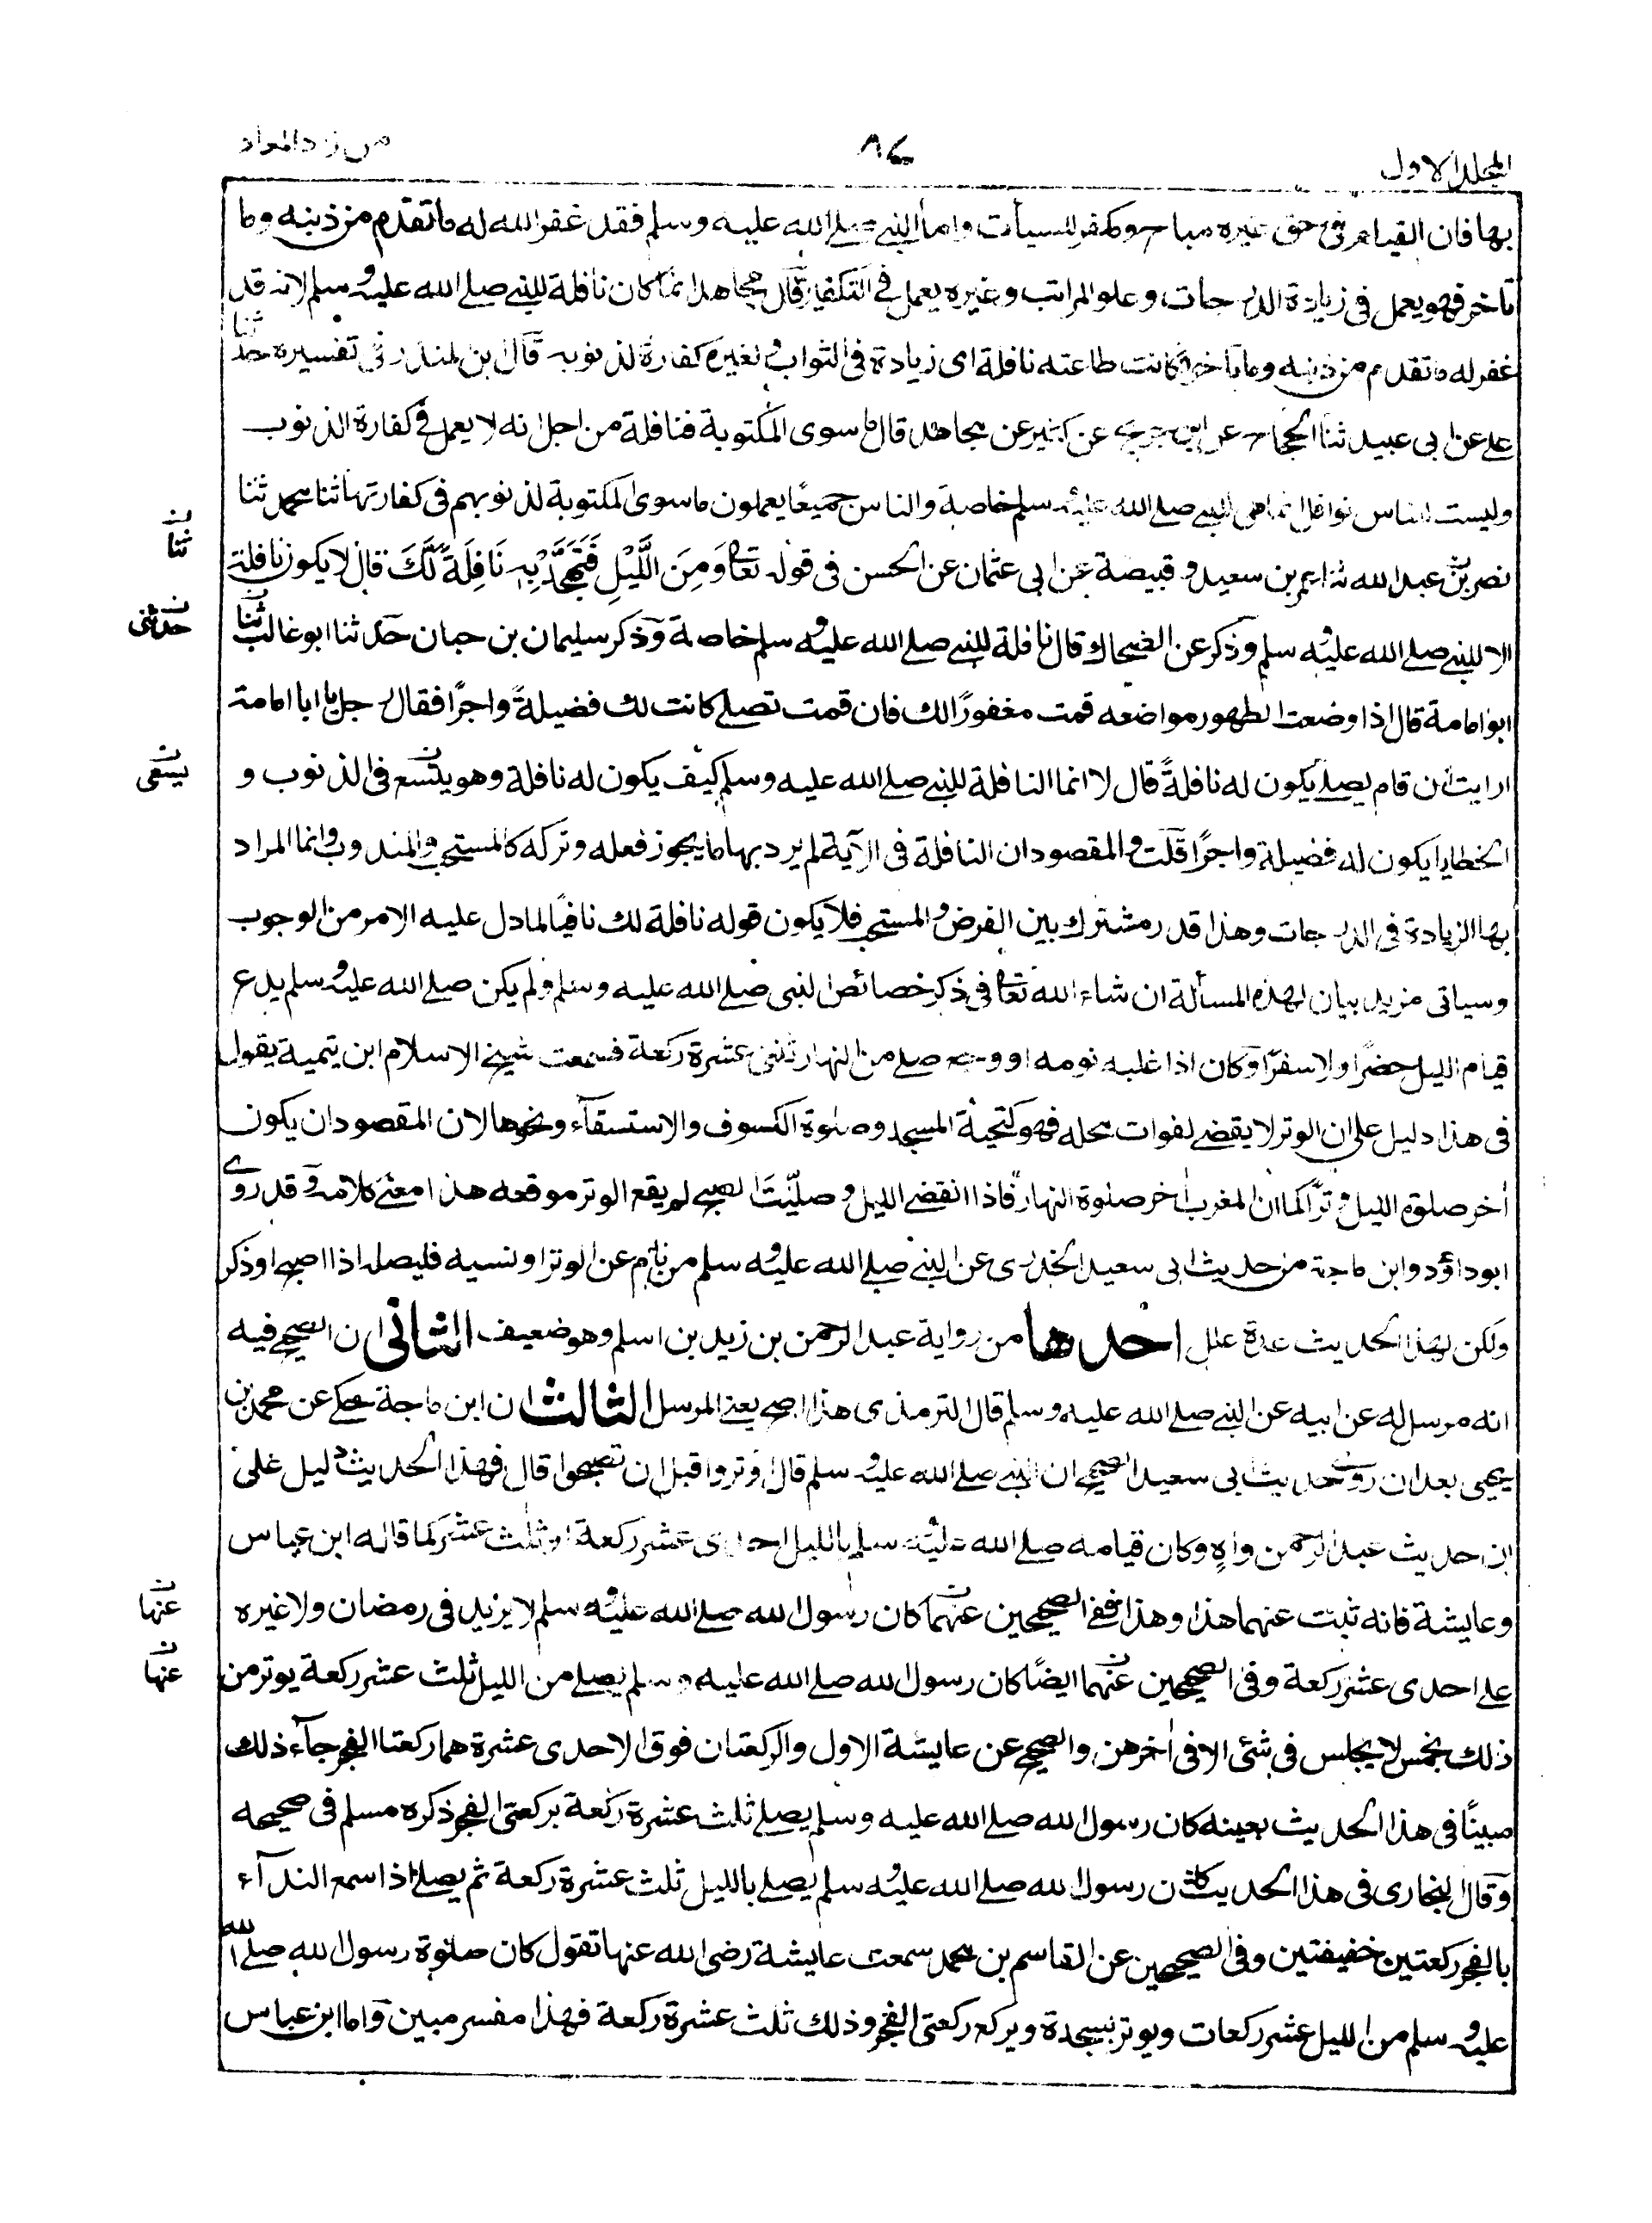 المجلد الاول
٨٧
من زاد المعاد
بها فان القيام فى حق غيره مباح ومكفر للسيأت واما النبى صلى الله عليه وسلم فقد غفر الله له ما تقدم من ذنبه وما
تاخر فهو يعمل فى زيادة الدرجات وعلو المراتب وغيره يعمل فى التكفير قال مجاهد انما كان نافلة للنبى صلى الله عليه وسلم لانه قد
غفر له ما تقدم من ذنبه وما تاخر فكانت طاعته نافلة اى زيادة فى الثواب ولغيره كفارة لذنوبه قال بن المنذر فى تفسيره حدثنا
على عن ابى عبيد ثنا الحجاج عن ابن جريج عن كثير عن مجاهد قال ما سوى المكتوبة فنافلة من اجل انه لا يعمل فى كفارة الذنوب
وليست للناس نوافل انما هى للنبى صلى الله عليه وسلم خاصة والناس جميعًا يعملون ما سوى المكتوبة لذنوبهم فى كفارتها ثنا محمد ثنا
نصر بن عبد الله ثنا عمر بن سعيد وقبيصة عن ابى عثمان عن الحسن فى قوله تعالى وَمِنَ اللَّيْلِ فَتَهَجَّدْ بِهٖ نَافِلَةً لَّكَ قال لا يكون نافلة
ثنا
الا للنبى صلى الله عليه وسلم وذكر عن الضحاك قال نافلة للنبى صلى الله عليه وسلم خاصة وذكر سليمان بن حبان حدثنا ابو غالب ثنا
حدثنى
ابو امامة قال اذا وضعت الطهور مواضعه قمت مغفورًا لك فان قمت تصلى كانت لك فضيلةً واجرًا فقال رجل يا ابا امامة
ارايت ان قام يصلى يكون له نافلةً قال لا انما النافلة للنبى صلى الله عليه وسلم كيف يكون له نافلة وهو يتسع فى الذنوب و
يسعى
الخطايا يكون له فضيلة واجرًا قلت والمقصود ان النافلة فى الآية لم يرد بها ما يجوز فعله وتركه كالمستحب والمندوب وانما المراد
بها الزيادة فى الدرجات وهذا قدر مشترك بين الفرض والمستحب فلا يكون قوله نافلة لك نافيًا لما دل عليه الامر من الوجوب
وسياتى مزيد بيان لهذه المسألة ان شاء الله تعالى فى ذكر خصائص النبى صلى الله عليه وسلم ولم يكن صلى الله عليه وسلم يدع
قيام الليل حضرًا ولا سفرًا وكان اذا غلبه نومه او وجع صلى من النهار ثنتى عشرة ركعة فسمعت شيخ الاسلام ابن تيمية يقول
فى هذا دليل على ان الوتر لا يقضى لفوات محله فهو كتحية المسجد وصلوة الكسوف والاستسقآء ونحوها لان المقصود ان يكون
أخر صلوة الليل وترًا كما ان المغرب أخر صلوة النهار فاذا انقضى الليل وصليت الصبح لم يقع الوتر موقعه هذا معنى كلامه وقد روى
ابو داؤد وابن ماجة من حديث ابى سعيد الخدرى عن النبى صلى الله عليه وسلم من نام عن الوتر او نسيه فليصله اذا اصبح او ذكر
ولكن لهذا الحديث عدة علل احدها من رواية عبد الرحمن بن زيد بن اسلم وهو ضعيف الثانى ان الصحيح فيه
انه مرسل له عن ابيه عن النبى صلى الله عليه وسلم قال الترمذى هذا اصح يعنى المرسل الثالث ان ابن ماجة حكى عن محمد بن
يحيى بعد ان روى حديث ابى سعيد الصحيح ان النبى صلى الله عليه وسلم قال اوتروا قبل ان تصبحوا قال فهذا الحديث دليل على
ان حديث عبد الرحمن واهٍ وكان قيامه صلى الله عليه وسلم بالليل احدى عشر ركعة او ثلث عشر كما قاله ابن عباس
وعايشة فانه ثبت عنهما هذا وهذا ففى الصحيحين عنهما كان رسول الله صلى الله عليه وسلم لا يزيد فى رمضان ولا غيره
عنها
على احدى عشر ركعة وفى الصحيحين عنهما ايضًا كان رسول الله صلى الله عليه وسلم يصلى من الليل ثلث عشر ركعة يوتر من
عنها
ذلك بخمس لا يجلس فى شئ الا فى أخرهن والصحيح عن عايشة الاول والركعتان فوق الاحدى عشرة هما ركعتا الفجر جآء ذلك
مبينًا فى هذا الحديث بعينه كان رسول الله صلى الله عليه وسلم يصلى ثلث عشرة ركعة بركعتى الفجر ذكره مسلم فى صحيحه
وقال البخارى فى هذا الحديث كان رسول الله صلى الله عليه وسلم يصلى بالليل ثلث عشرة ركعة ثم يصلى اذا سمع الندآء
بالفجر ركعتين خفيفتين وفى الصحيحين عن القاسم بن محمد سمعت عايشة رضى الله عنها تقول كان صلوة رسول الله صلى الله
عليه وسلم من الليل عشر ركعات ويوتر بسجدة ويركع ركعتى الفجر وذلك ثلث عشرة ركعة فهذا مفسر مبين واما ابن عباس